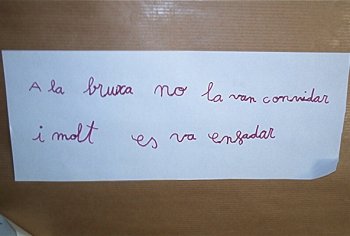 A la bruxa no la van convidar
i molt es va enfadar